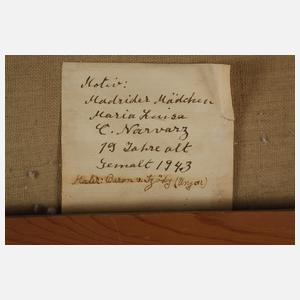 Motiv:
Madrider Mädchen
Maria Luisa
C. Narvarz
19 Jahre alt
Gemalt 1943
Maler: Baron v. (Ungar)